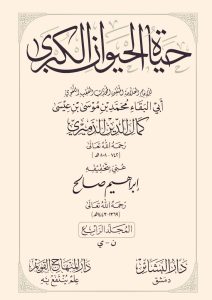 حياة الحيوان الكبرى
للإمام العلامة
أبي البقاء محمد بن موسى بن عيسى
كمال الدين الدميري
رحمه الله تعالى
(٧٤٢ - ٨٠٨ هـ)
عني بتحقيقه
إبراهيم صالح
رحمه الله تعالى
المجلد الرابع
ن - ي
دار البشائر
دمشق
دار المنهاج القويم
علم ينتفع به